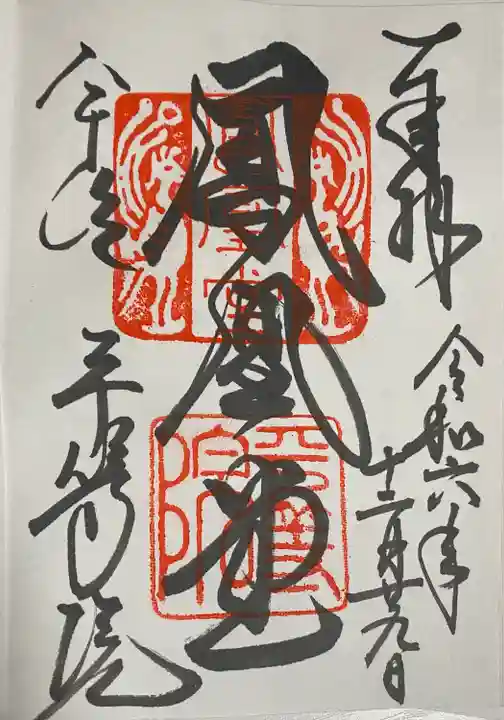 奉拝
令和六年
十二月廿九日
鳳凰堂
鳳凰堂
平等院
宇治
平等院